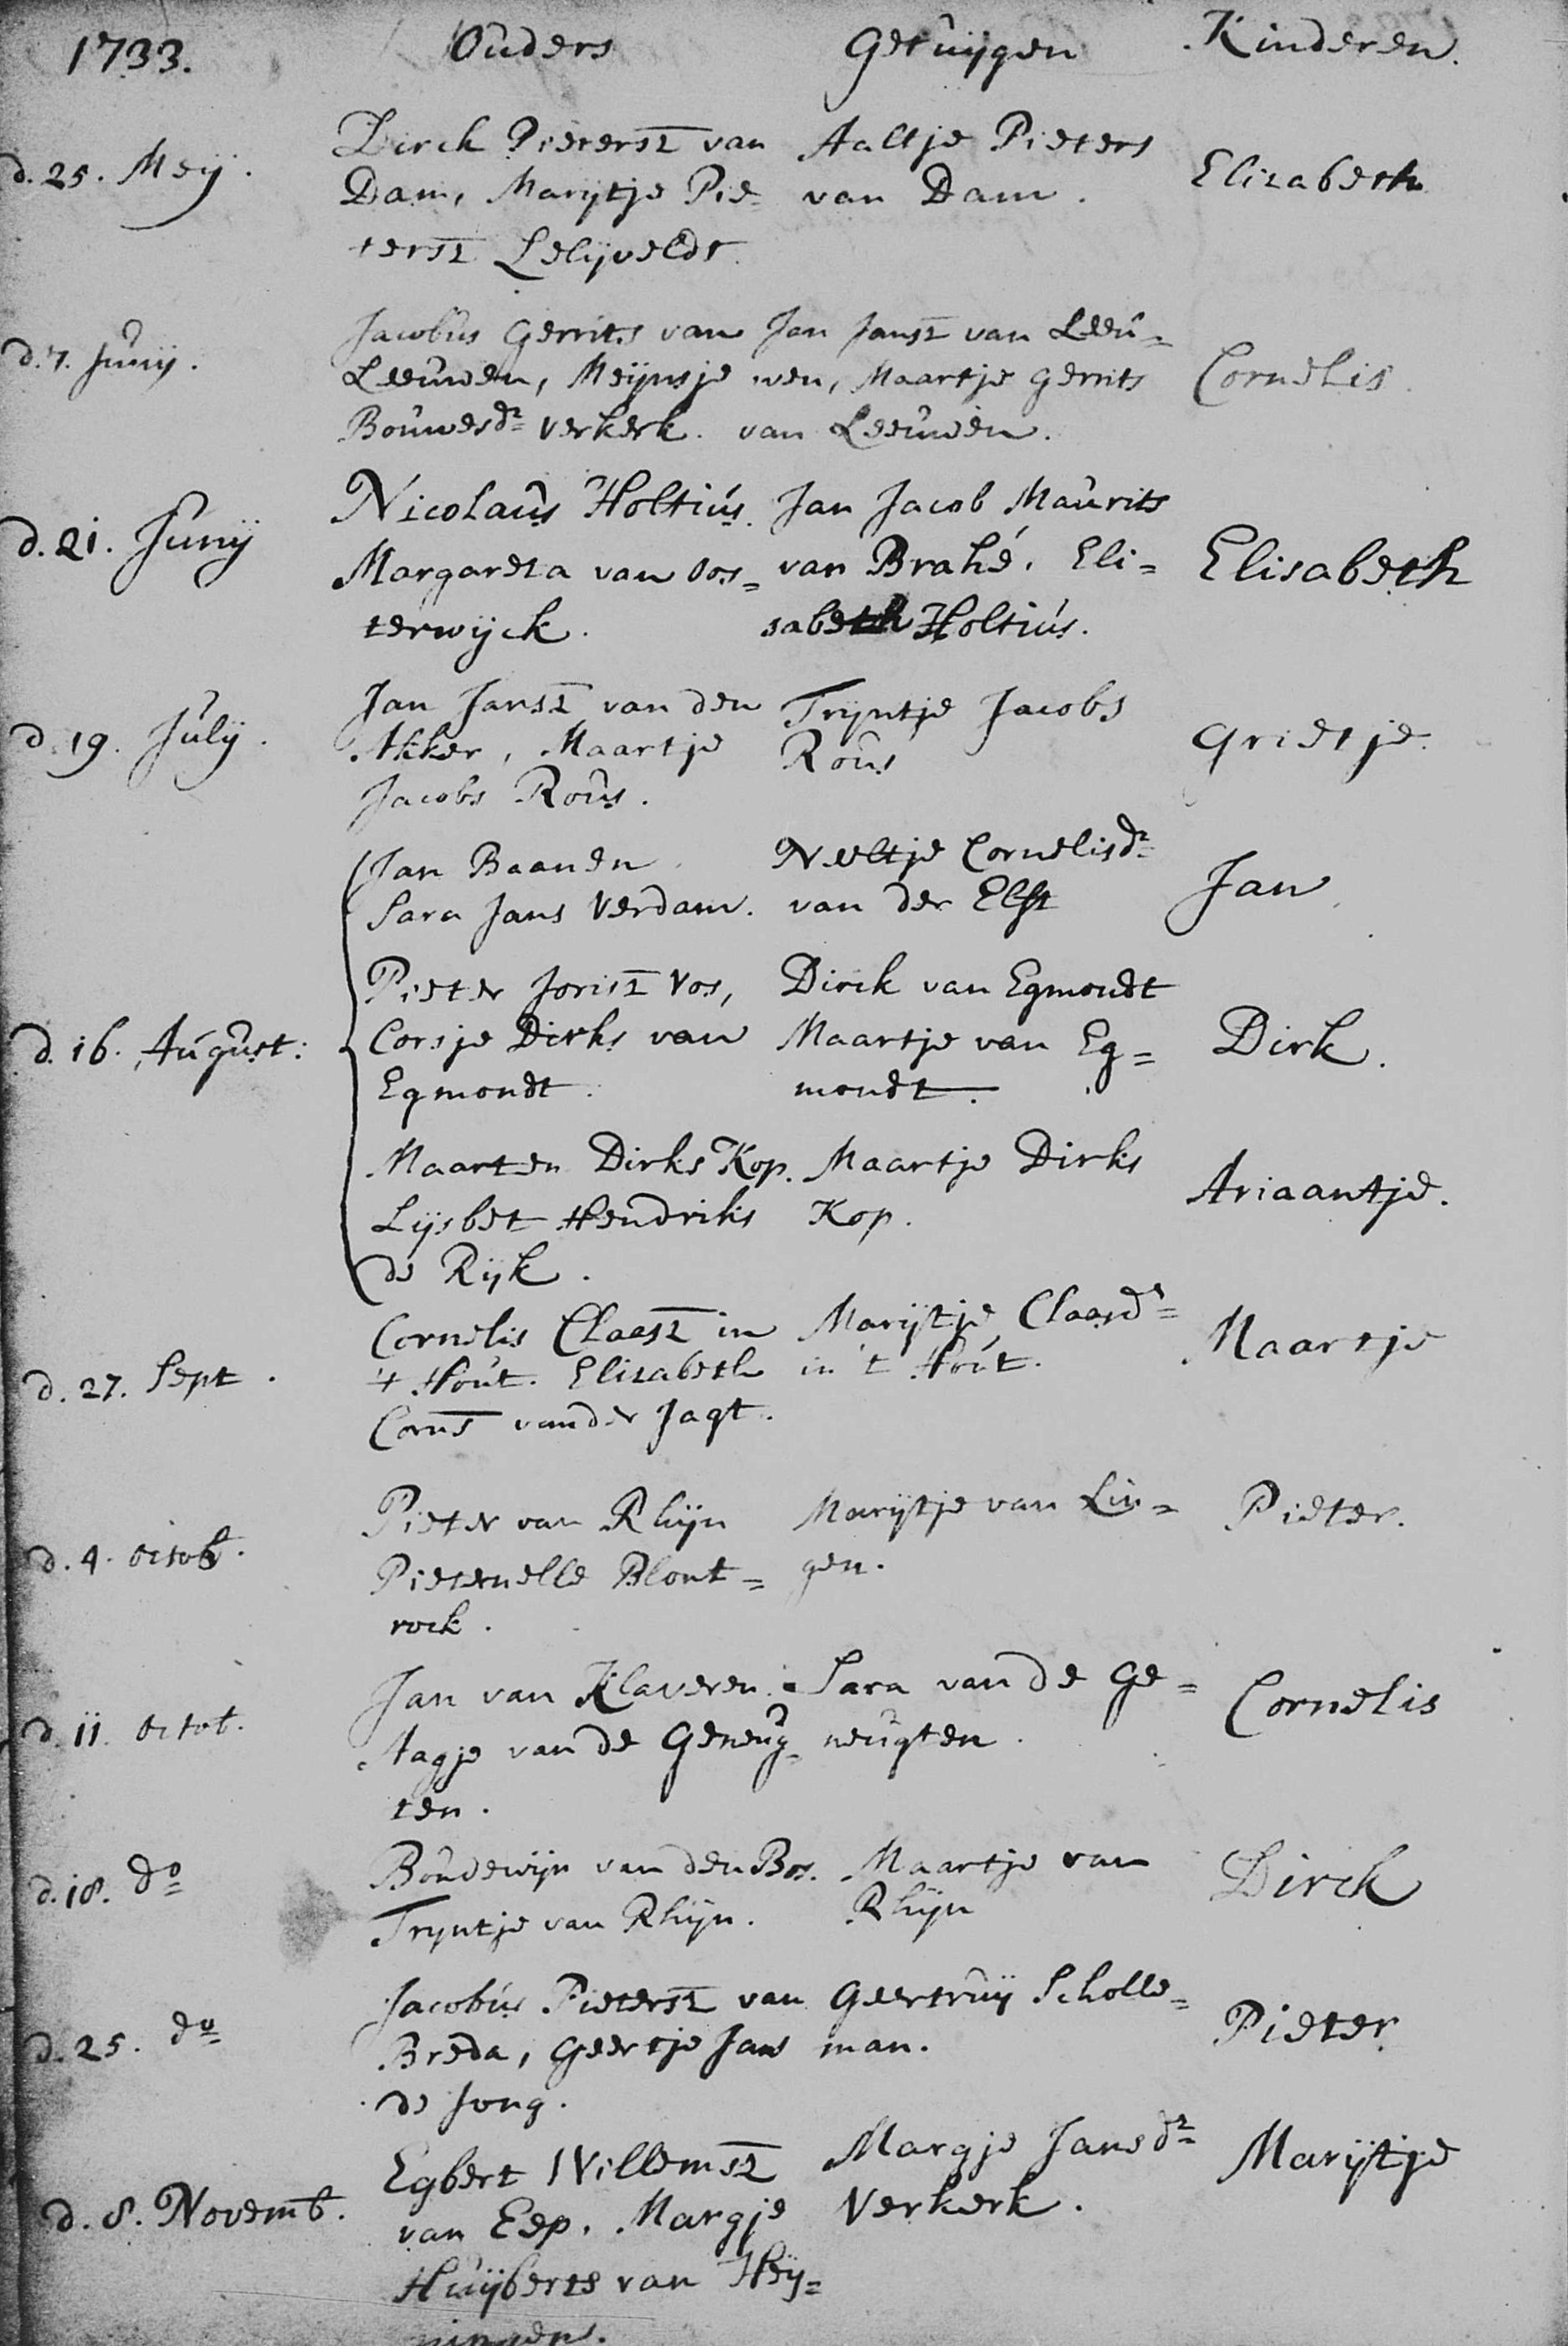 1733. Ouders Getuijgen Kinderen.
Dirck Pietersz van Aaltje Pieters
d. 25. Meij. Dam, Marijtje Pie= van Dam. Elizabeth
tersz Lelijveldt.
Jacobus Gerrits van Jan Jansz van Leeu=
d. 7. Junij. Leeuwen, Meijnsje wen, Maartje Gerrits Cornelis
Bouwesdr Verkerk. van Leeuwen.
Nicolaus Holtius. Jan Jacob Maurits
d. 21. Junij Margareta van Oos= van Brahé. Eli= Elisabeth
terwijck. sabeth Holtius.
Jan Jansz van den Trijntje Jacobs
d. 19. Julij. Akker, Maartje Rous Grietje.
Jacobs Rous.
Jan Baanen Neeltje Cornelisdr Jan
Sara Jans Verdam. van der Elst
Pieter Jorisz Vos, Dirck van Egmondt
d. 16. August: Corsje Dirks van Maartje van Eg= Dirk.
Egmondt. mondt.
Maarten Dirks Kop. Maartje Dirks Ariaantje.
Lijsbet Hendriks Kop.
de Rijk.
Cornelis Claesz in Marijtje Claasdr Maartje
d. 27. Sept. 't Hout. Elizabeth in 't Hout.
Corns vander Jagt.
Pieter van Rhijn Marijtje van Lin= Pieter.
d. 4. octob. Pieternelle Blont= gen.
rock.
Jan van Klaveren. Sara van de Ge= Cornelis
d. 11. octob. Aagje van de Geneug= neugten.
ten.
d. 18. do Boudewijn van den Bos. Maartje van Dirck
Trijntje van Rhijn. Rhijn
Jacobus Pietersz van Geertruij Scholle= Pieter
d. 25. do Breda, Geertje Jans man.
de Jong.
Egbert Willemsz Margje Jansdr Marijtje
d. 8. Novemb. van Eep. Margje Verkerk.
Huijberts van Heij=
ningen.